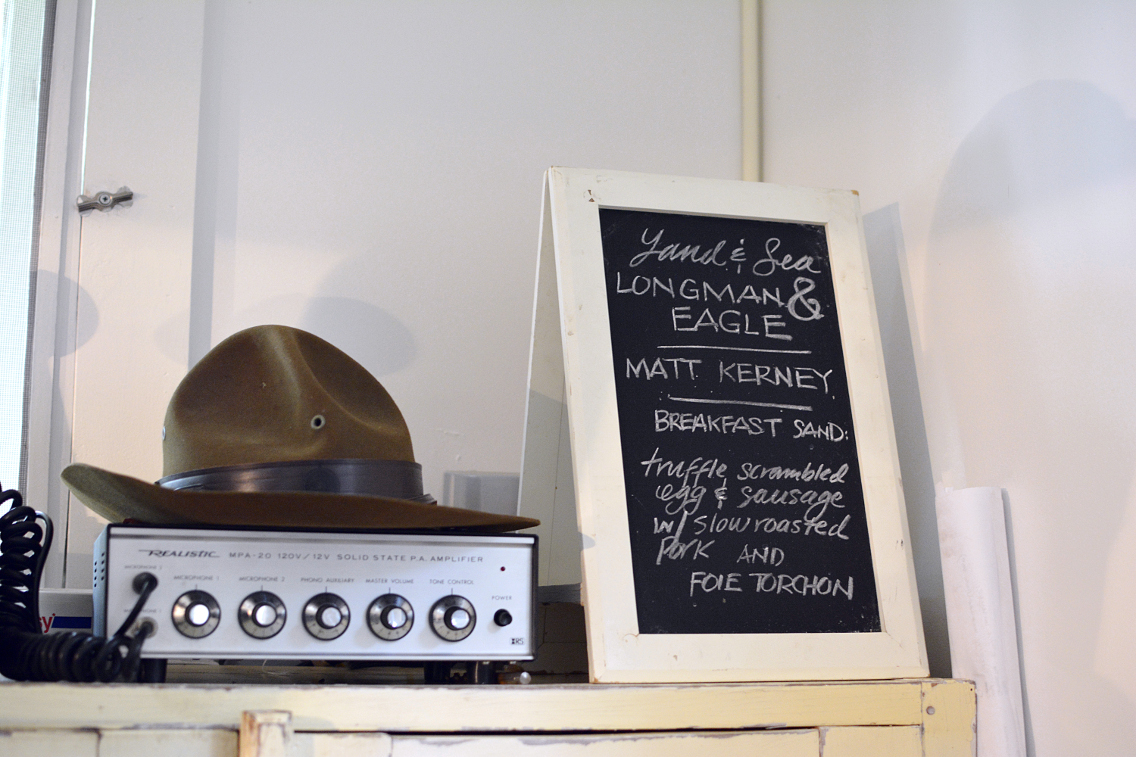 Land & Sea
LONGMAN &
EAGLE
MATT KERNEY
BREAKFAST SAND:
truffle scrambled
egg & sausage
w/ slow roasted
Pork AND
FOIE TORCHON
REALISTIC MPA-20 120V/12V SOLID STATE P.A. AMPLIFIER
MICROPHONE 2
MICROPHONE 1 MICROPHONE 2 PHONO AUXILIARY MASTER VOLUME TONE CONTROL
POWER
MICROPHONE 1